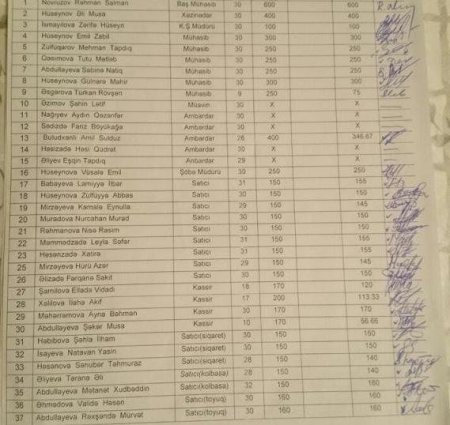 1 Novruzov Rəhman Salman Baş Mühasib 30 600 600
2 Hüseynov Əli Musa Xəzinədar 30 400 400
3 İsmayılova Zərifə Hüseyn K.Ş Müdürü 30 300 300
4 Hüseynov Emil Zabil Mühasib 30 300 300
5 Zülfüqarov Mehman Tapdıq Mühasib 30 250 250
6 Qasımova Tutu Mətləb Mühasib 30 250 250
7 Abdullayeva Səbinə Natiq Mühasib 30 250 250
8 Hüseynova Gülnarə Mahir Mühasib 30 300 300
9 Əsgərova Türkan Rövşən Mühasib 9 250 75
10 Əzimov Şahin Lətif Müavin 30 X X
11 Nağıyev Aydın Qəzənfər Anbardar 30 X X
12 Sədizadə Fariz Böyükağa Anbardar 30 X X
13 Buludxanlı Amil Sulduz Anbardar 26 400 346.67
14 Həsizadə Həsi Qüdrət Anbardar 30 X X
15 Əliyev Eşqin Tapdıq Anbardar 29 X X
16 Hüseynova Vüsalə Emil Şöbə Müdürü 30 250 250
17 Babayeva Ləmiyyə İlbar Satıcı 31 150 155
18 Hüseynova Zülfüyyə Abbas Satıcı 30 150 150
19 Mirzəyeva Kəmalə Eynulla Satıcı 29 150 145
20 Muradova Nurcahan Murad Satıcı 30 150 150
21 Rəhmanova Nisə Rasim Satıcı 30 150 150
22 Məmmədzadə Leyla Səfər Satıcı 31 150 155
23 Həsənzadə Xatirə Satıcı 31 150 155
25 Mirzəyeva Hürü Azər Satıcı 29 150 145
26 Əlizadə Fərqanə Sakit Satıcı 30 150 150
27 Şamilova Ellada Vidadi Kassir 18 170 120
28 Xəlilova İlahə Akif Kassir 17 200 113.33
29 Məhərrəmova Aynə Bəhmən Kassir 30 170 170
30 Abdullayeva Şəkər Musa Kassir 10 170 56.66
31 Həbibova Şəhla İlham Satıcı(siqaret) 30 150 150
32 İsayeva Natavan Yasin Satıcı(siqaret) 30 150 150
33 Həsənova Sənubər Təhmuraz Satıcı(siqaret) 28 150 140
34 Əliyeva Təranə Əli Satıcı(kolbasa) 28 150 140
35 Abdullayeva Mətanət Xudbəddin Satıcı(kolbasa) 32 150 160
36 Əhmədova Validə Həsən Satıcı(toyuq) 30 160 160
37 Abdullayeva Rəxşəndə Mürvət Satıcı(toyuq) 30 160 160